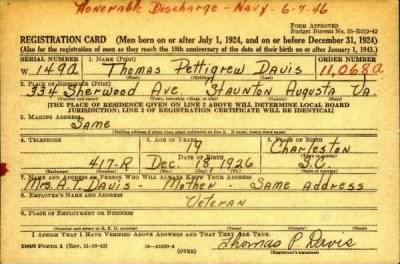 Honorable Discharge - Navy - 6-7-46
FORM APPROVED
Budget Bureau No. 33-R012-42
REGISTRATION CARD (Men born on or after July 1, 1924, and on or before December 31, 1924)
(Also for the registration of men as they reach the 18th anniversary of the date of their birth on or after January 1, 1943.)
SERIAL NUMBER 1. NAME (Print) ORDER NUMBER
W 149a Thomas Pettigrew Davis 11,068a
2. PLACE OF RESIDENCE (Print)
334 Sherwood Ave. Staunton Augusta Va.
[THE PLACE OF RESIDENCE GIVEN ON LINE 2 ABOVE WILL DETERMINE LOCAL BOARD
JURISDICTION; LINE 2 OF REGISTRATION CERTIFICATE WILL BE IDENTICAL]
3. MAILING ADDRESS
Same
4. TELEPHONE 5. AGE IN YEARS 6. PLACE OF BIRTH
19 Charleston
DATE OF BIRTH
417-R Dec. 18, 1926 S.C.
7. NAME AND ADDRESS OF PERSON WHO WILL ALWAYS KNOW YOUR ADDRESS
Mrs. A.T. Davis - Mother - Same Address
8. EMPLOYER'S NAME AND ADDRESS
Veteran
9. PLACE OF EMPLOYMENT OR BUSINESS
I AFFIRM THAT I HAVE VERIFIED ABOVE ANSWERS AND THAT THEY ARE TRUE.
DSS Form 1 (Rev. 11-16-42) (OVER) Thomas P. Davis